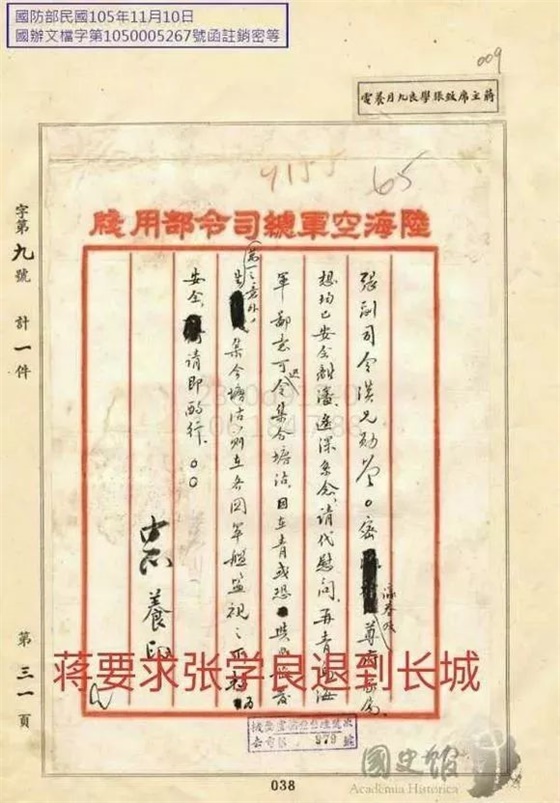 國防部民國105年11月10日
國辦文檔字第1050005267號函註銷密等
009
蔣主席致張學良九月養電
9155
65
陸海空軍總司令部用牋
張副司令漢兄勛鑒。密 尊處家屬
想均已安全離瀋,遙深系念,請代慰問。再青島海
軍 可 令集合塘沽,因在青或恐
萬一之意外,
集合塘沽,則在各國軍艦監視之
安全 請即酌行。
中正 養印
字第九號 計一件 第三一頁
蒋要求张学良退到长城
979
038
國史館
Academia Historica